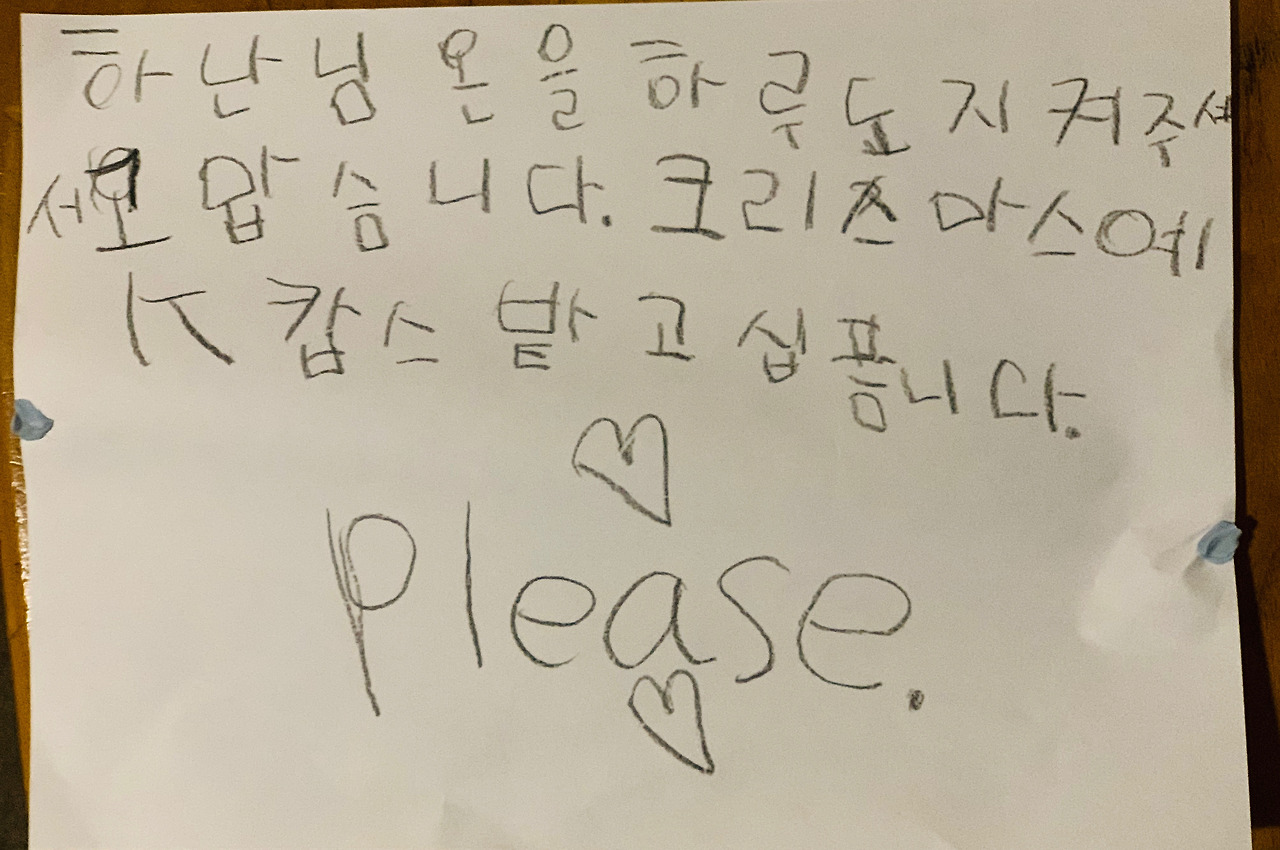 하난님 온을 하루도 지켜주셔
서 오맙습니다. 크리즈마스에
K 캅스 밭고 십품니다.
please.